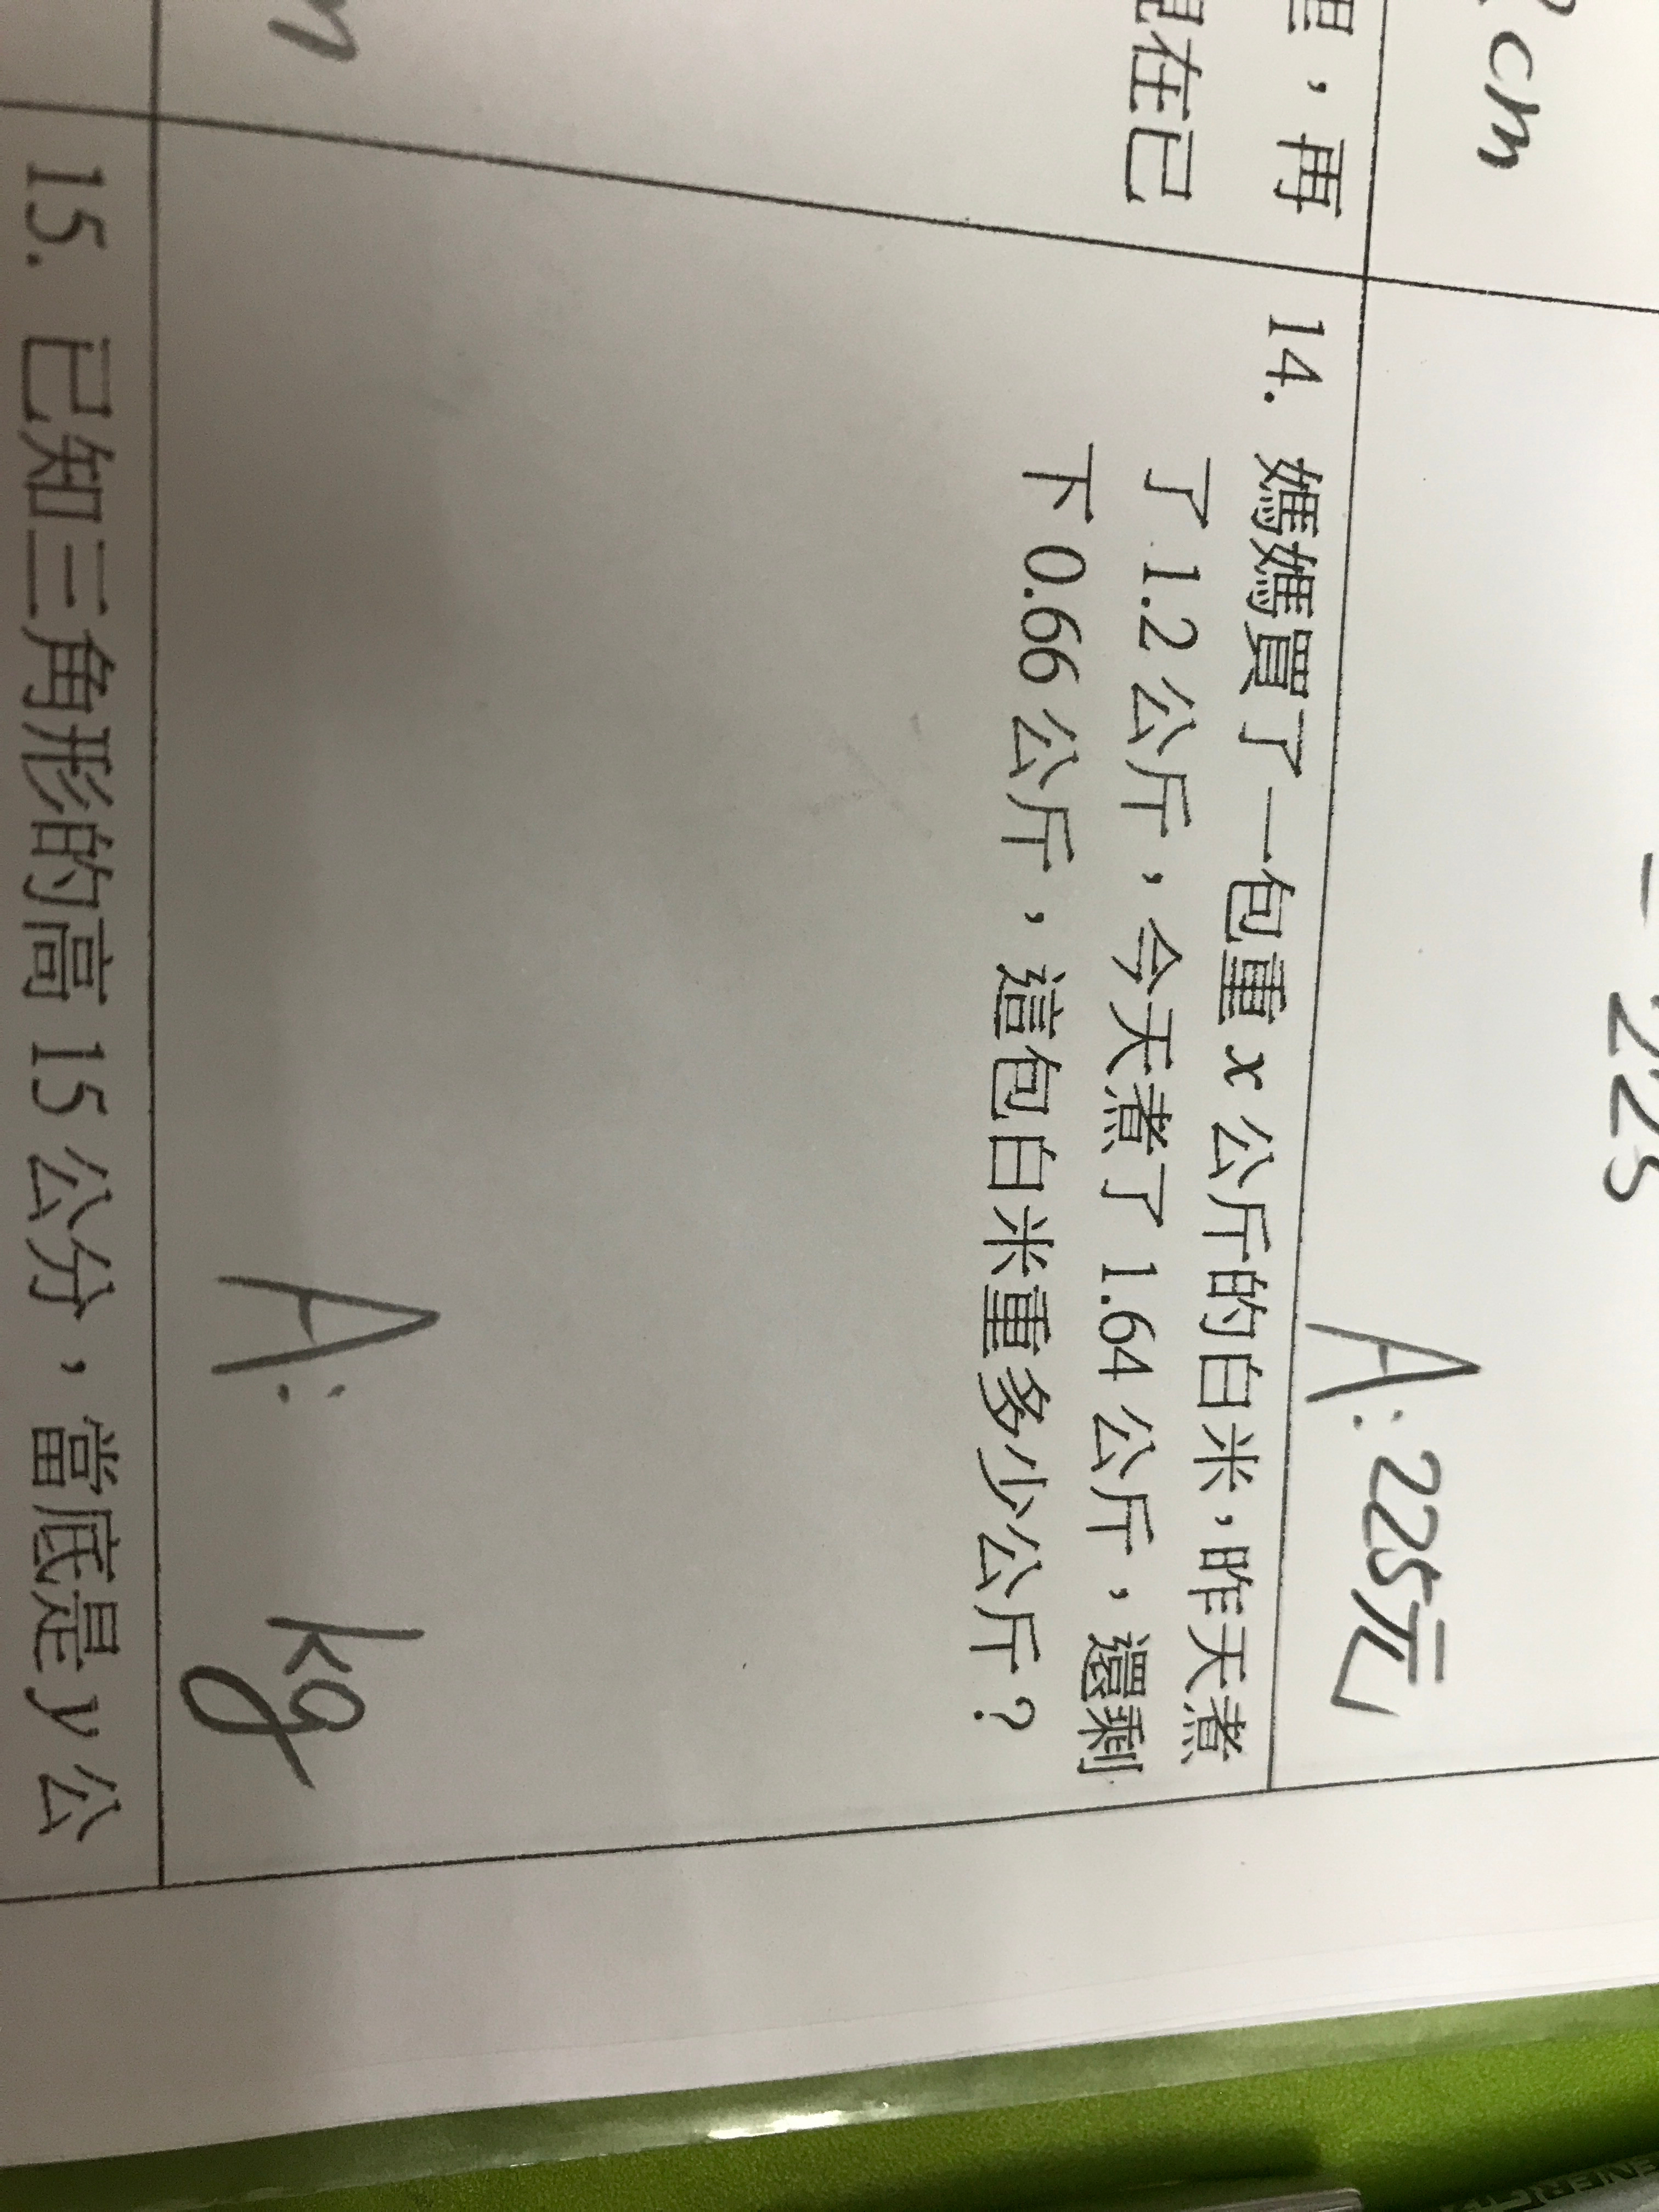 cm
= 225
A: 225元
，再
現在已
14. 媽媽買了一包重 x 公斤的白米，昨天煮
了 1.2 公斤，今天煮了 1.64 公斤，還剩
下 0.66 公斤，這包白米重多少公斤？
A: kg
15. 已知三角形的高 15 公分，當底是 y 公